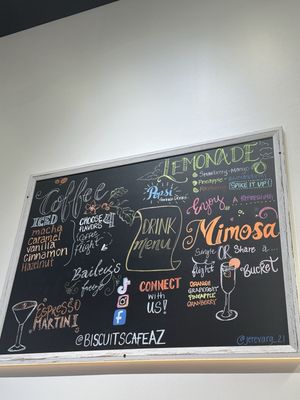 Coffee
ICED
mocha
caramel
vanilla
Cinnamon
Hazelnut
CHOOSE 4
FLAVORS
Coffee
flight
Bailey's
ESPRESSO
MARTINI
Pepsi
DRINK
menu
CONNECT
with
US!
@BISCUITSCAFEAZ
LEMONADE
Strawberry-Mango
Pineapple
SPIKE IT UP!
Enjoy
A REFRESHING
Mimosa
Single OR Share a...
flight
Bucket
ORANGE
GRAPEFRUIT
PINEAPPLE
CRANBERRY
@jerevarg_21